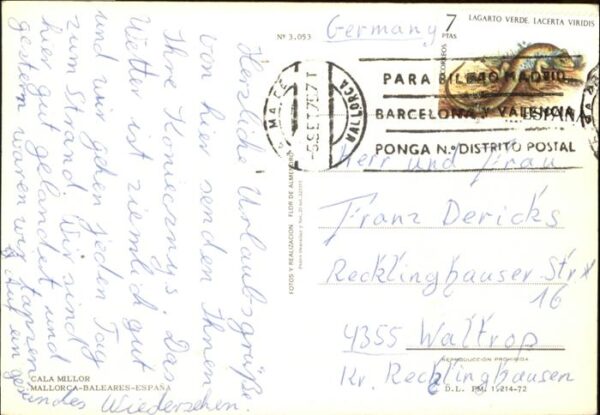 Herzliche Urlaubsgrüße
von hier senden Ihnen
Ihre Konieczny's. Das
Wetter ist ziemlich gut
und wir gehen jeden Tag
zum Strand. Wir sind
hier gut gelandet und
gestern waren wir
Auf ein gesundes Wiedersehen.
CALA MILLOR
MALLORCA-BALEARES-ESPAÑA
Nº 3.053
FOTOS Y REALIZACION FLOR DE ALMENDRO
Germany
7
PTAS
CORREOS
LAGARTO VERDE. LACERTA VIRIDIS
ESPAÑA
MALLORCA
PARA BILBAO MADRID
BARCELONA Y VALENCIA
PONGA N.º DISTRITO POSTAL
Herr und Frau
Franz Dericks
Recklinghauser Str.
16
4355 Waltrop
Kr. Recklinghausen
REPRODUCCION PROHIBIDA
D. L. PM. 1.214-72